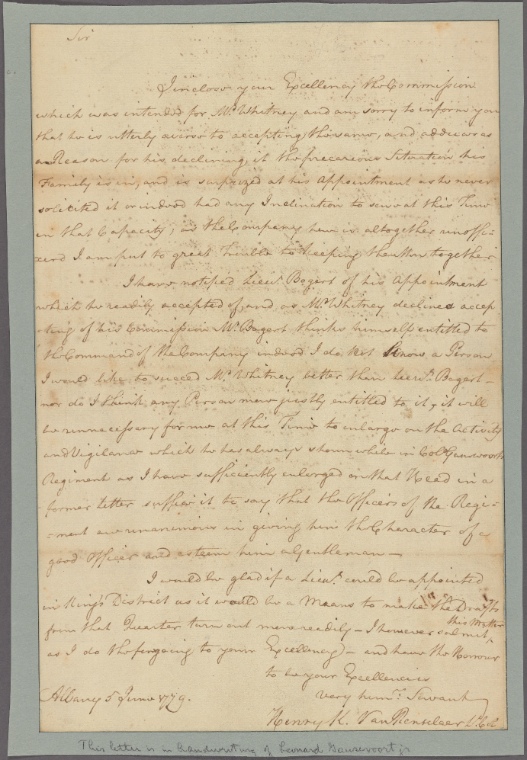 Sir
I inclose your Excellency the Commission
which was intended for Mr. Whitney and am sorry to inform you
that he is utterly averse to accepting the same, and adduces as
a Reason for his declining it the precarious Situation his
Family is in, and is surprized at his Appointment as he never
solicited it or indeed had any Inclination to serve at this Time
in that Capacity; as the Company here is altogether unoffi-
cered I am put to great Trouble to keeping the Men together
I have notified Lieut. Bogert of his Appointment
which he readily accepted of, and as Mr. Whitney declines accep
ting of his Commission Mr. Bogert thinks himself entitled to
the Command of the Company indeed I do not know a Person
I would like to succeed Mr. Whitney better than Lieut. Bogert -
nor do I think any Person more justly entitled to it, it will
be unnecessary for me at this Time to enlarge on the Activity
and Vigilance which he has always shown while in Colo. Gansevoorts
Regiment as I have sufficiently enlarged on that Head in a
former letter suffice it to say that the Officers of the Regi-
-ment are unanimous in giving him the Character of a
good Officer and esteem him a Gentleman -
I would be glad if a Lieut. could be appointed
in King's District as it would be a Means to make the Drafts
from that Quarter turn out more readily - I however submit
this Matter
as I do the forgoing to your Excellency - and have the Honour
to be your Excellencies
very hume. Servant
Albany 5 June 1779.
Henry K. Van Rensselaer
This letter is in handwriting of Leonard Gansevoort jr